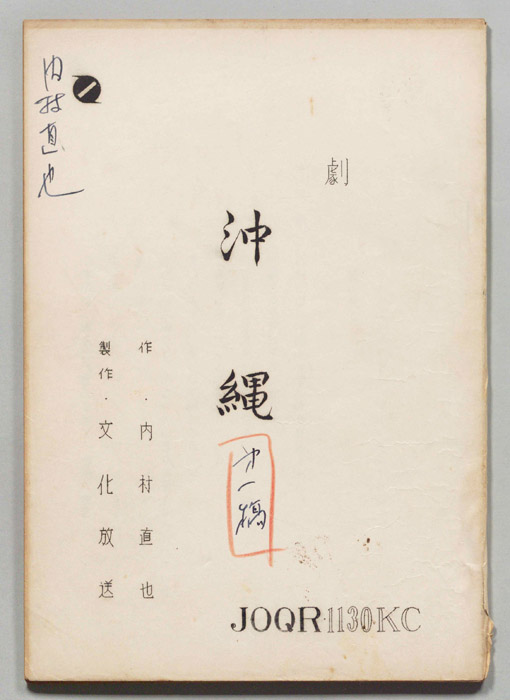 劇
沖縄
才一稿
作・内村直也
製作・文化放送
内村直也
JOQR・1130・KC